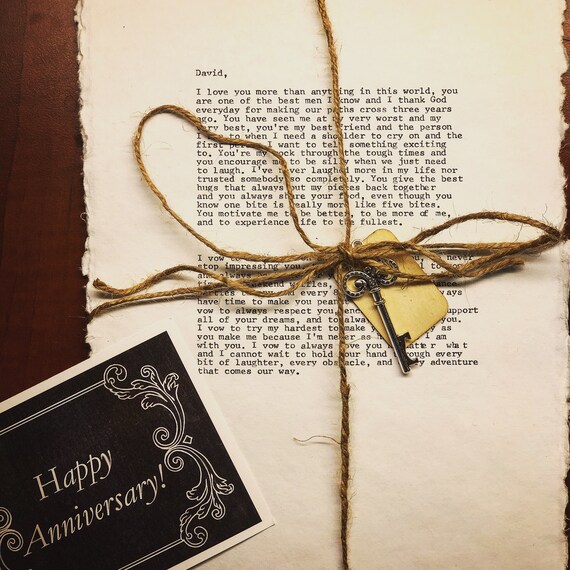 David,
I love you more than anything in this world, you
are one of the best men I know and I thank God
everyday for making our paths cross three years
ago. You have seen me at my very worst and my
very best, you're my best friend and the person
to when I need a shoulder to cry on and the
first I want to tell something exciting
to. You're my rock through the tough times and
you encourage me to be silly when we just need
to laugh. I've never laughed more in my life nor
trusted somebody so completely. You give the best
hugs that always put my pieces back together
and you always share your food, even though you
know one bite is really more like five bites.
You motivate me to be better, to be more of me,
and to experience life to the fullest.
I vow to never
stop impressing you
time weekend
and every
have time to make you
vow to always respect you support
all of your dreams, and to always
I vow to try my hardest to make you as
you make me because I'm never as I am
with you. I vow to always love you no matter what
and I cannot wait to hold your hand through every
bit of laughter, every obstacle, and every adventure
that comes our way.
Happy
Anniversary!